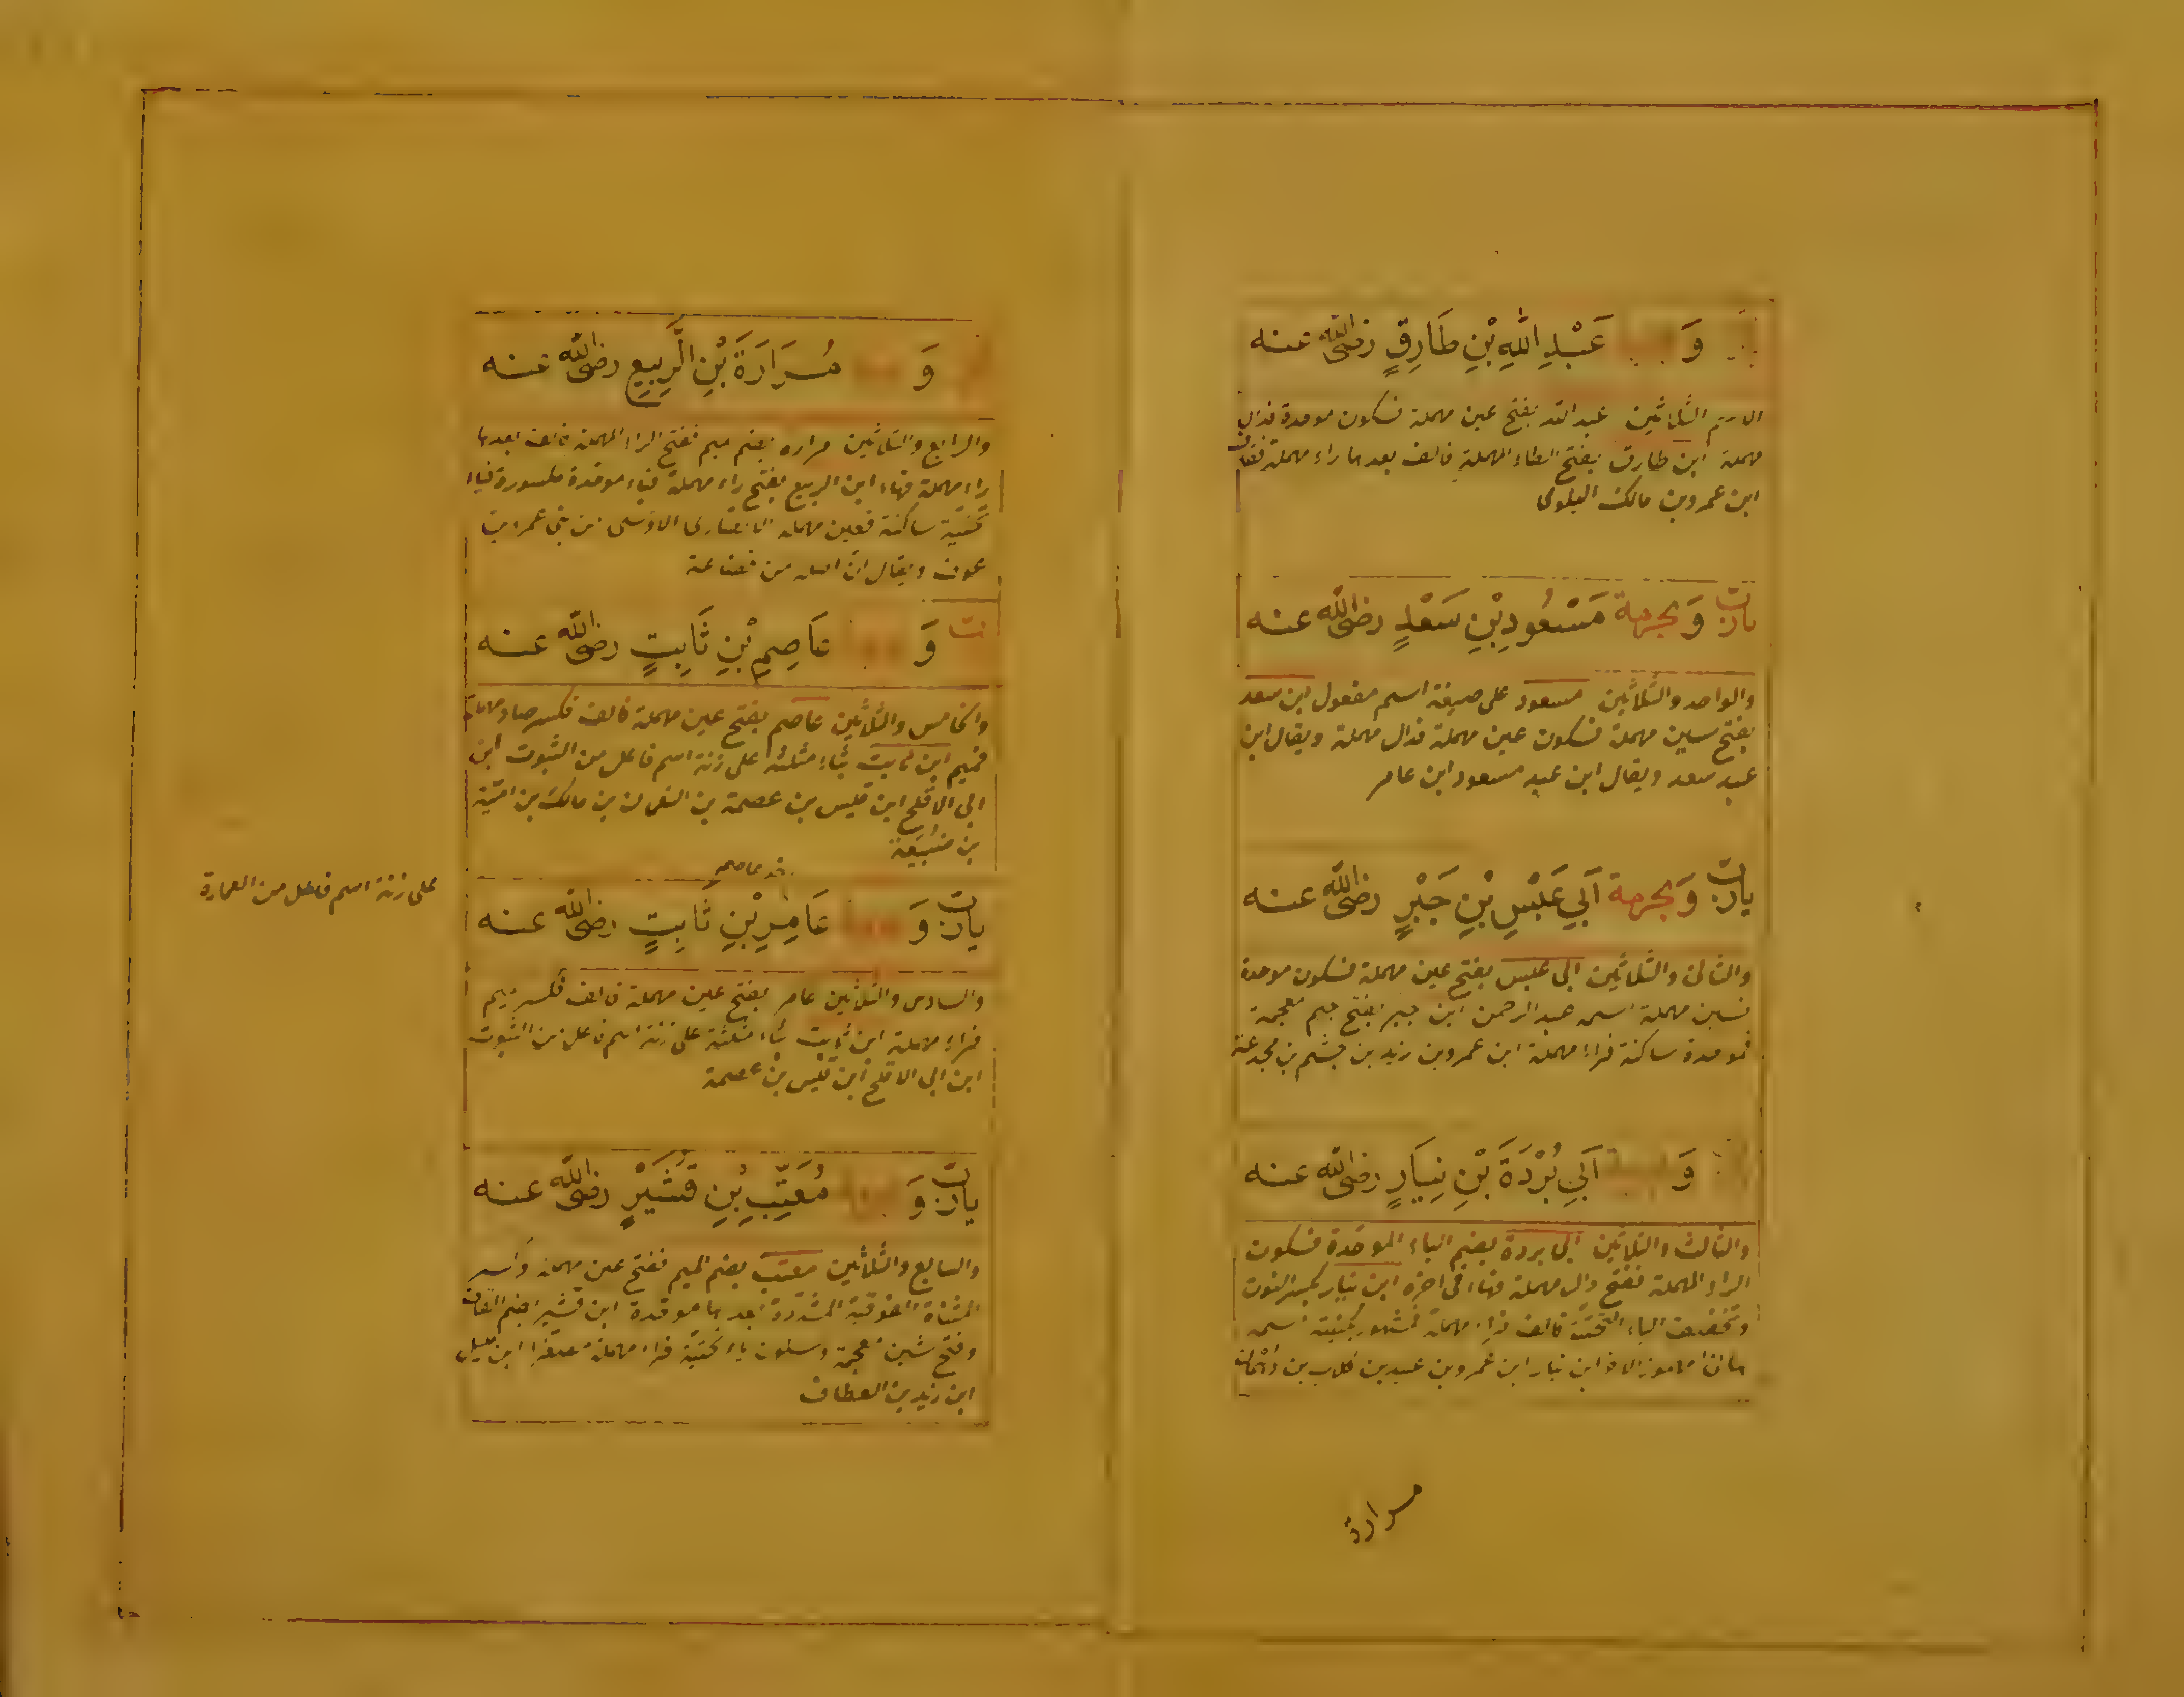 وَ عَبْدِ اللهِ بْنِ طَارِقٍ رضى الله عنه
الثلاثين عبد الله بفتح عين مهملة فسكون موحدة فدال
مهملة ابن طارق بفتح الطاء المهملة فالف بعدها راء مهملة فقاف
ابن عمرو بن مالك البلوى
يارب وَبحرمة مَسْعُودِ بْنِ سَعْدٍ رضى الله عنه
والواحد والثلاثين مسعود على صيغة اسم مفعول ابن سعد
بفتح سين مهملة فسكون عين مهملة فدال مهملة ويقال ابن
عبد سعد ويقال ابن عبد مسعود ابن عامر
يارب وَبحرمة اَبِي عَبْسِ بْنِ جَبْرٍ رضى الله عنه
والثانى والثلاثين ابى عبس بفتح عين مهملة فسكون موحدة
فسين مهملة اسمه عبد الرحمن ابن جبر بفتح جيم معجمة
فموحدة ساكنة فراء مهملة ابن عمرو بن زيد بن جشم بن مجدعة
وَ اَبِي بُرْدَةَ بْنِ نِيَارٍ رضى الله عنه
والثالث والثلاثين ابى بردة بضم الباء الموحدة فسكون
الراء المهملة ففتح دال مهملة فهاء فى اخره ابن نيار بكسر النون
وتخفيف الياء التحتية فالف فراء مهملة مشهور بكنيته اسمه
هانئ ابن نيار ابن عمرو بن عبيد بن كلاب بن دهمان
مرارة
وَ مُرَارَةَ بْنِ الرَّبِيعِ رضى الله عنه
والرابع والثلاثين مراره بضم ميم ففتح الراء المهملة فالف بعدها
راء مهملة فهاء ابن الربيع بفتح راء مهملة فباء موحدة مكسورة فياء
تحتية ساكنة فعين مهملة الانصارى الاوسى من بنى عمرو بن
عوف ويقال ان اصله من قضاعة
وَ عَاصِمِ بْنِ ثَابِتٍ رضى الله عنه
والخامس والثلاثين عاصم بفتح عين مهملة فالف فكسر صاد مهملة
فميم ابن ثابت بثاء مثلثة على زنة اسم فاعل من الثبوت ابن
ابى الاقلح ابن قيس بن عصمة بن النعمان بن مالك بن امية
بن ضبيعة
يارب وَ عَامِرِ بْنِ ثَابِتٍ رضى الله عنه
والسادس والثلاثين عامر بفتح عين مهملة فالف فكسر ميم
فراء مهملة ابن ثابت بثاء مثلثة على زنة اسم فاعل من الثبوت
ابن ابى الاقلح ابن قيس بن عصمة
على زنة اسم فاعل من العمارة
يارب وَ مُعَتِّبِ بْنِ قُشَيْرٍ رضى الله عنه
والسابع والثلاثين معتب بضم الميم ففتح عين مهملة
المثناة الفوقية المشددة بعدها موحدة ابن قشير بضم القاف
وفتح شين معجمة وسكون ياء تحتية فراء مهملة مصغرا ابن مليل
ابن زيد بن العطاف